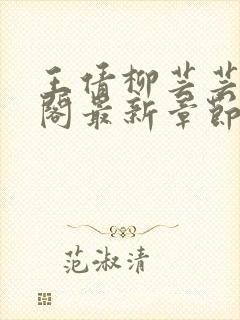 王倩柳芸芸
阁最新章节
范淑清